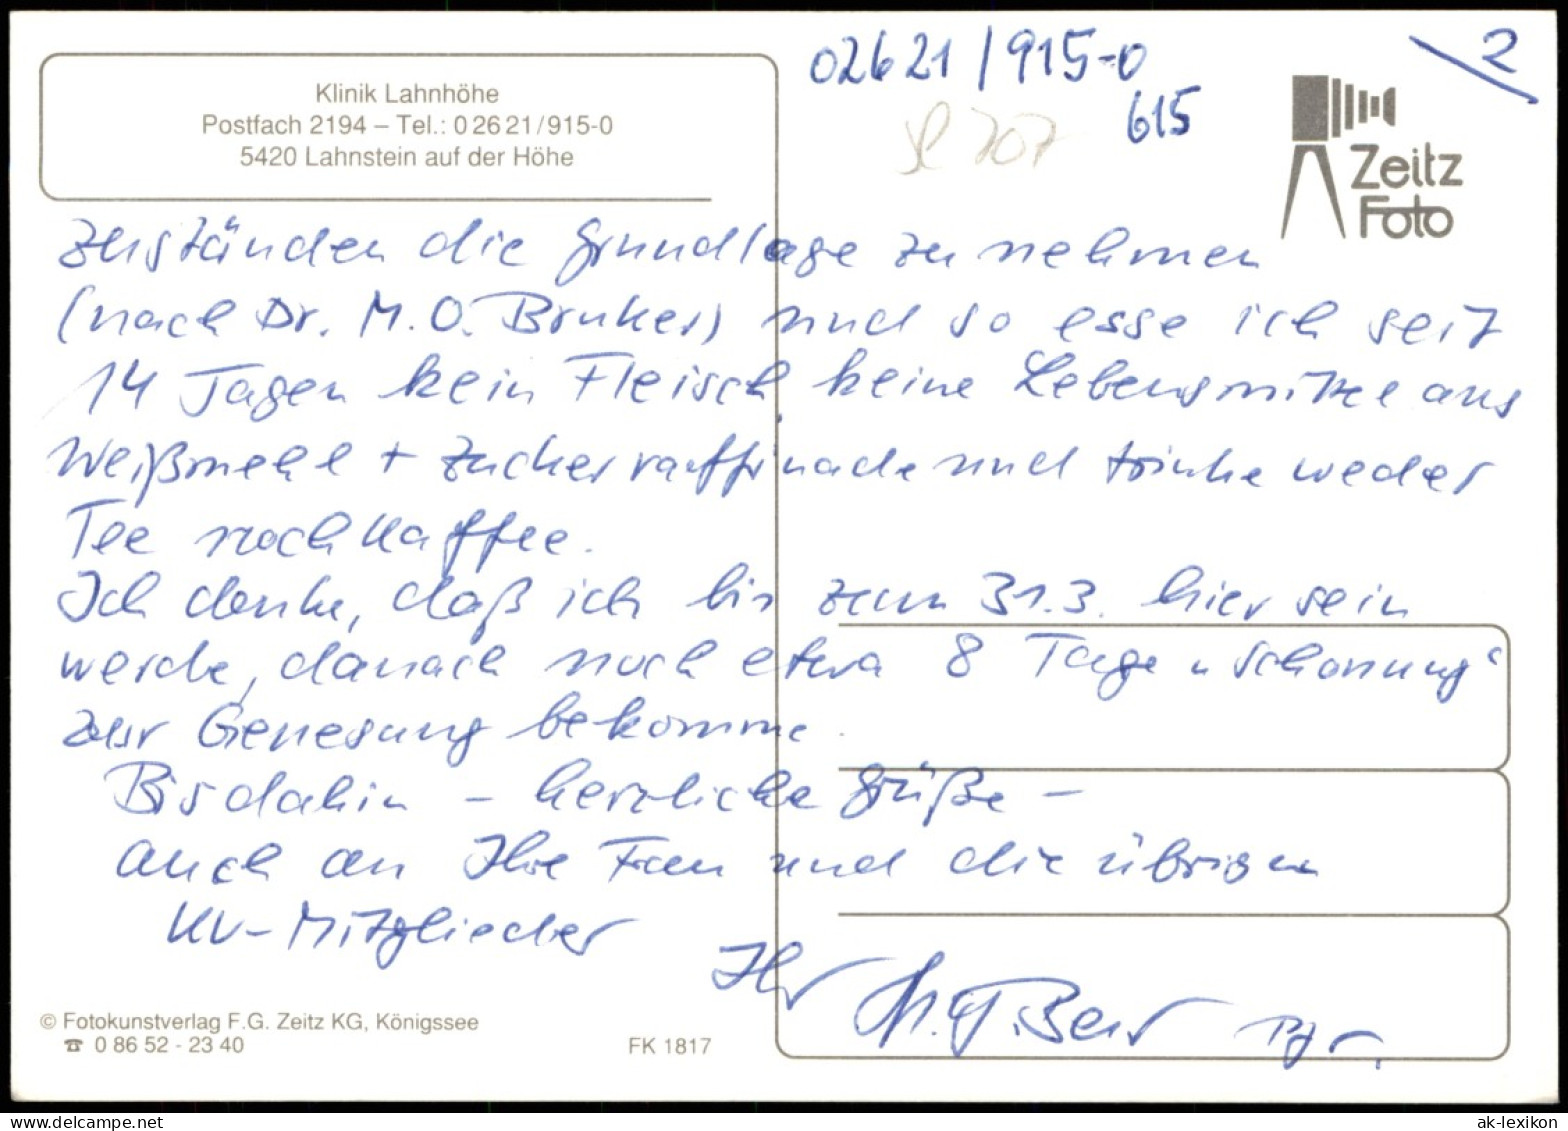 Klinik Lahnhöhe
Postfach 2194 – Tel.: 0 26 21/915-0
5420 Lahnstein auf der Höhe
02621/915-0
615
2
Zeitz
Foto
zuständen die Grundlage zu nehmen
(nach Dr. M. O. Bruker) und so esse ich seit
14 Tagen kein Fleisch, keine Lebensmittel aus
Weißmehl + Zuckerraffinade und trinke weder
Tee noch Kaffee.
Ich denke, daß ich bis zum 31.3. hier sein
werde, danach noch etwa 8 Tage "Schonung"
zur Genesung bekomme.
Bis dahin – herzliche Grüße –
auch an Ihre Frau und die übrigen
KV-Mitglieder
Ihr
© Fotokunstverlag F.G. Zeitz KG, Königssee
☎ 0 86 52 - 23 40
FK 1817
ak-lexikon